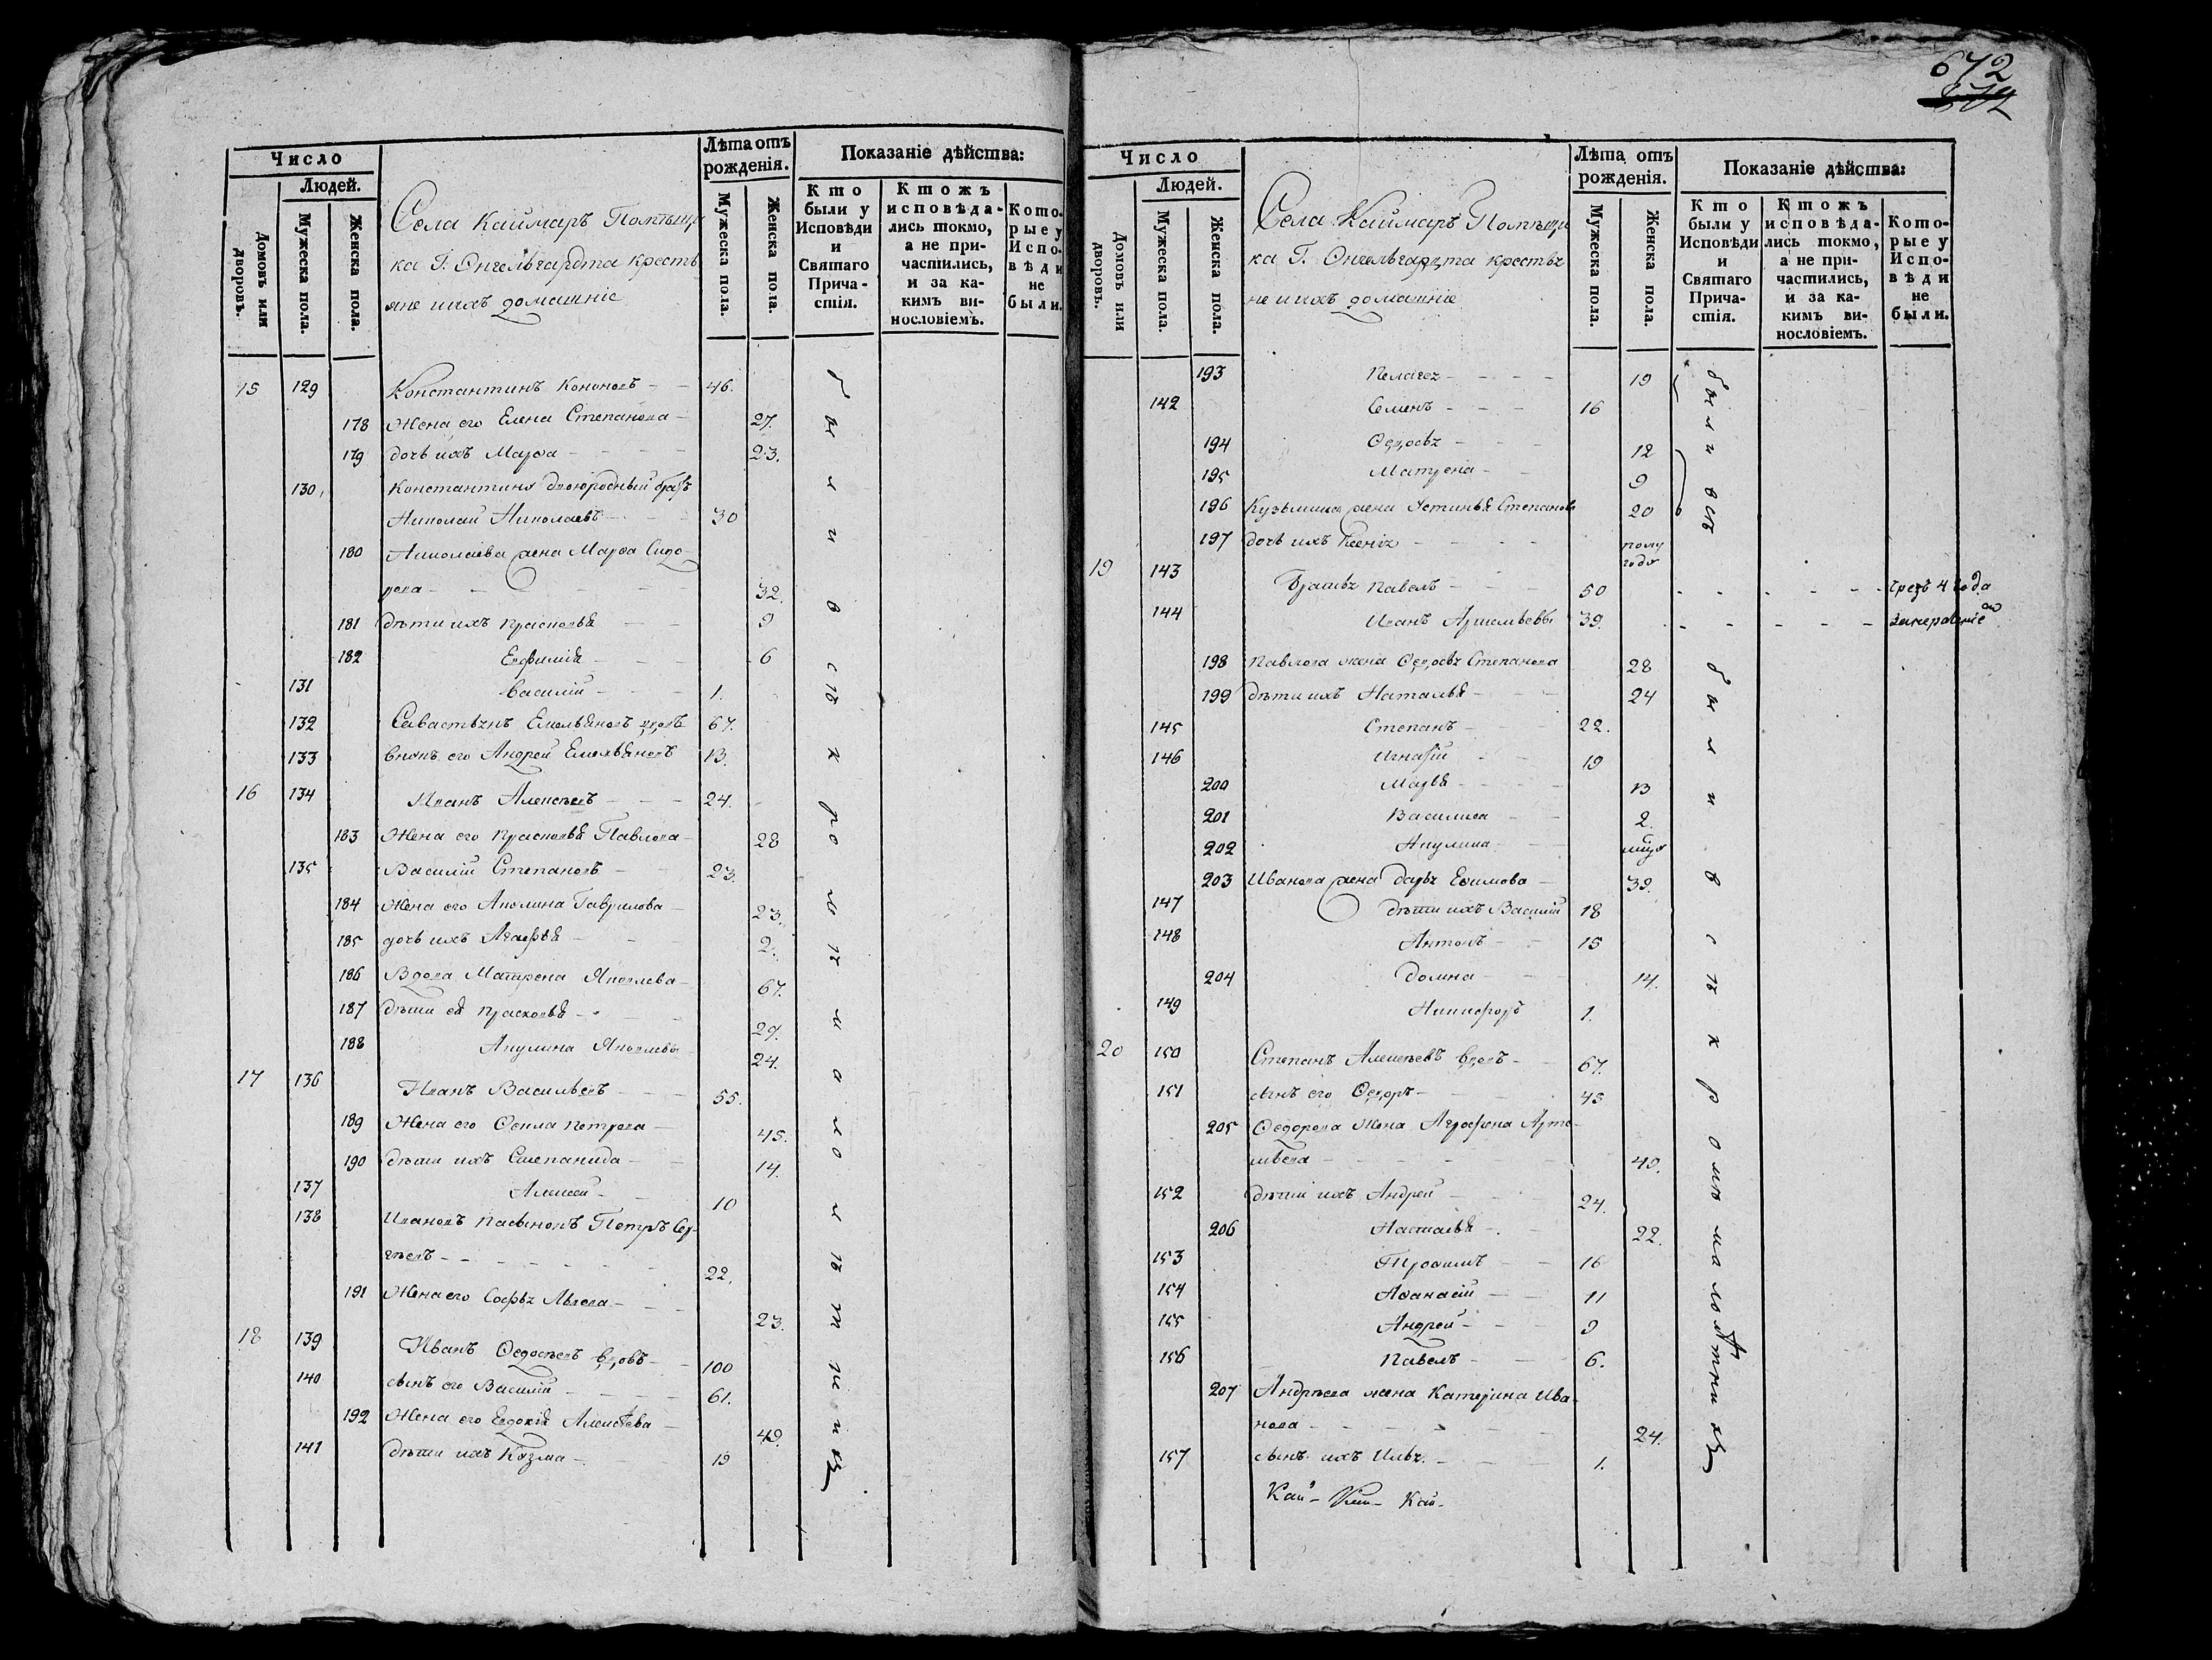 672
Число
Людей.
Домовъ или дворовъ.
Мужеска пола.
Женска пола.
Села Каймаръ Помѣщи
ка Г. Энгельгардта кресть
яне и ихъ домашніе
Лѣта отъ рожденія.
Мужеска пола.
Женска пола.
Показаніе дѣйства:
Кто были у Исповѣди и Святаго Причастія.
Ктожъ исповѣдались токмо, а не причастились, и за какимъ винословіемъ.
Которые у Исповѣди не были.
15 129 Константинъ Кононовъ 46.
178 Жена его Елена Степанова 27.
179 дочь ихъ Марѳа 23.
130 Константина двоюродный братъ
Николай Николаевъ 30
180 Николаева жена Марѳа Сидо
рова 32.
181 дѣти ихъ Прасковья 9
182 Евфимія 6
131 Василій 1.
132 Савастьянъ Емельяновъ вдовъ 67.
133 внукъ его Андрей Емельяновъ 13.
16 134 Иванъ Алексеевъ 24.
183 Жена его Прасковья Павлова 28
135 Василій Степановъ 23.
184 Жена его Акулина Гаврилова 23.
185 дочь ихъ Агафья 2.
186 Вдова Матрена Яковлева 67.
187 дѣти ея Прасковья 29.
188 Акулина Яковлевы 24.
17 136 Иванъ Васильевъ 55.
189 Жена его Ѳекла Петрова 45.
190 дѣти ихъ Степанида 14.
137 Алексей 10
138 Ивановъ пасынокъ Петръ Сер-
гѣевъ 22.
191 Жена его Софья Львова 23.
18 139 Иванъ Ѳедосѣевъ вдовъ 100
140 сынъ его Василій 61.
192 Жена его Евдокія Алексѣева 49.
141 дѣти ихъ Козма 19
были всѣ кромѣ малолѣтнихъ
Число
Людей.
Домовъ или дворовъ.
Мужеска пола.
Женска пола.
Села Каймаръ Помѣщи
ка Г. Энгельгардта крестья
не и ихъ домашніе
Лѣта отъ рожденія.
Мужеска пола.
Женска пола.
Показаніе дѣйства:
Кто были у Исповѣди и Святаго Причастія.
Ктожъ исповѣдались токмо, а не причастились, и за какимъ винословіемъ.
Которые у Исповѣди не были.
193 Пелагея 19
142 Семенъ 16
194 Ѳедосья 12
195 Матрена 9
196 Кузьмина жена Устинья Степанова 20
были всѣ
197 дочь ихъ Ксенія полу
года
19 143 Братья Павелъ 50 Чрезъ 4 года
144 Иванъ Артемьевы 39.
198 Павлова жена Ѳедосья Степанова 28
199 дѣти ихъ Наталья 24
145 Степанъ 22.
146 Игнатій 19
200 Марья 13
201 Василиса 2.
202 Акулина
203 Иванова жена Дарья Ефимова 39.
147 дѣти ихъ Василій 18
148 Антонъ 15
204 Домна 14.
149 Никифоръ 1.
20 150 Степанъ Алексѣевъ вдовъ 67.
151 сынъ его Ѳедоръ 45
205 Ѳедорова Жена Аграфена Арте-
мьева 40.
152 дѣти ихъ Андрей 24.
206 Наталья 22.
153 Трофимъ 16
154 Афанасій 11
155 Андрей 9
156 Павелъ 6.
207 Андрѣева жена Катерина Ива-
нова 24.
157 сынъ ихъ Илья 1.
были всѣ кромѣ малолѣтнихъ
Кай- Кай- Кай-